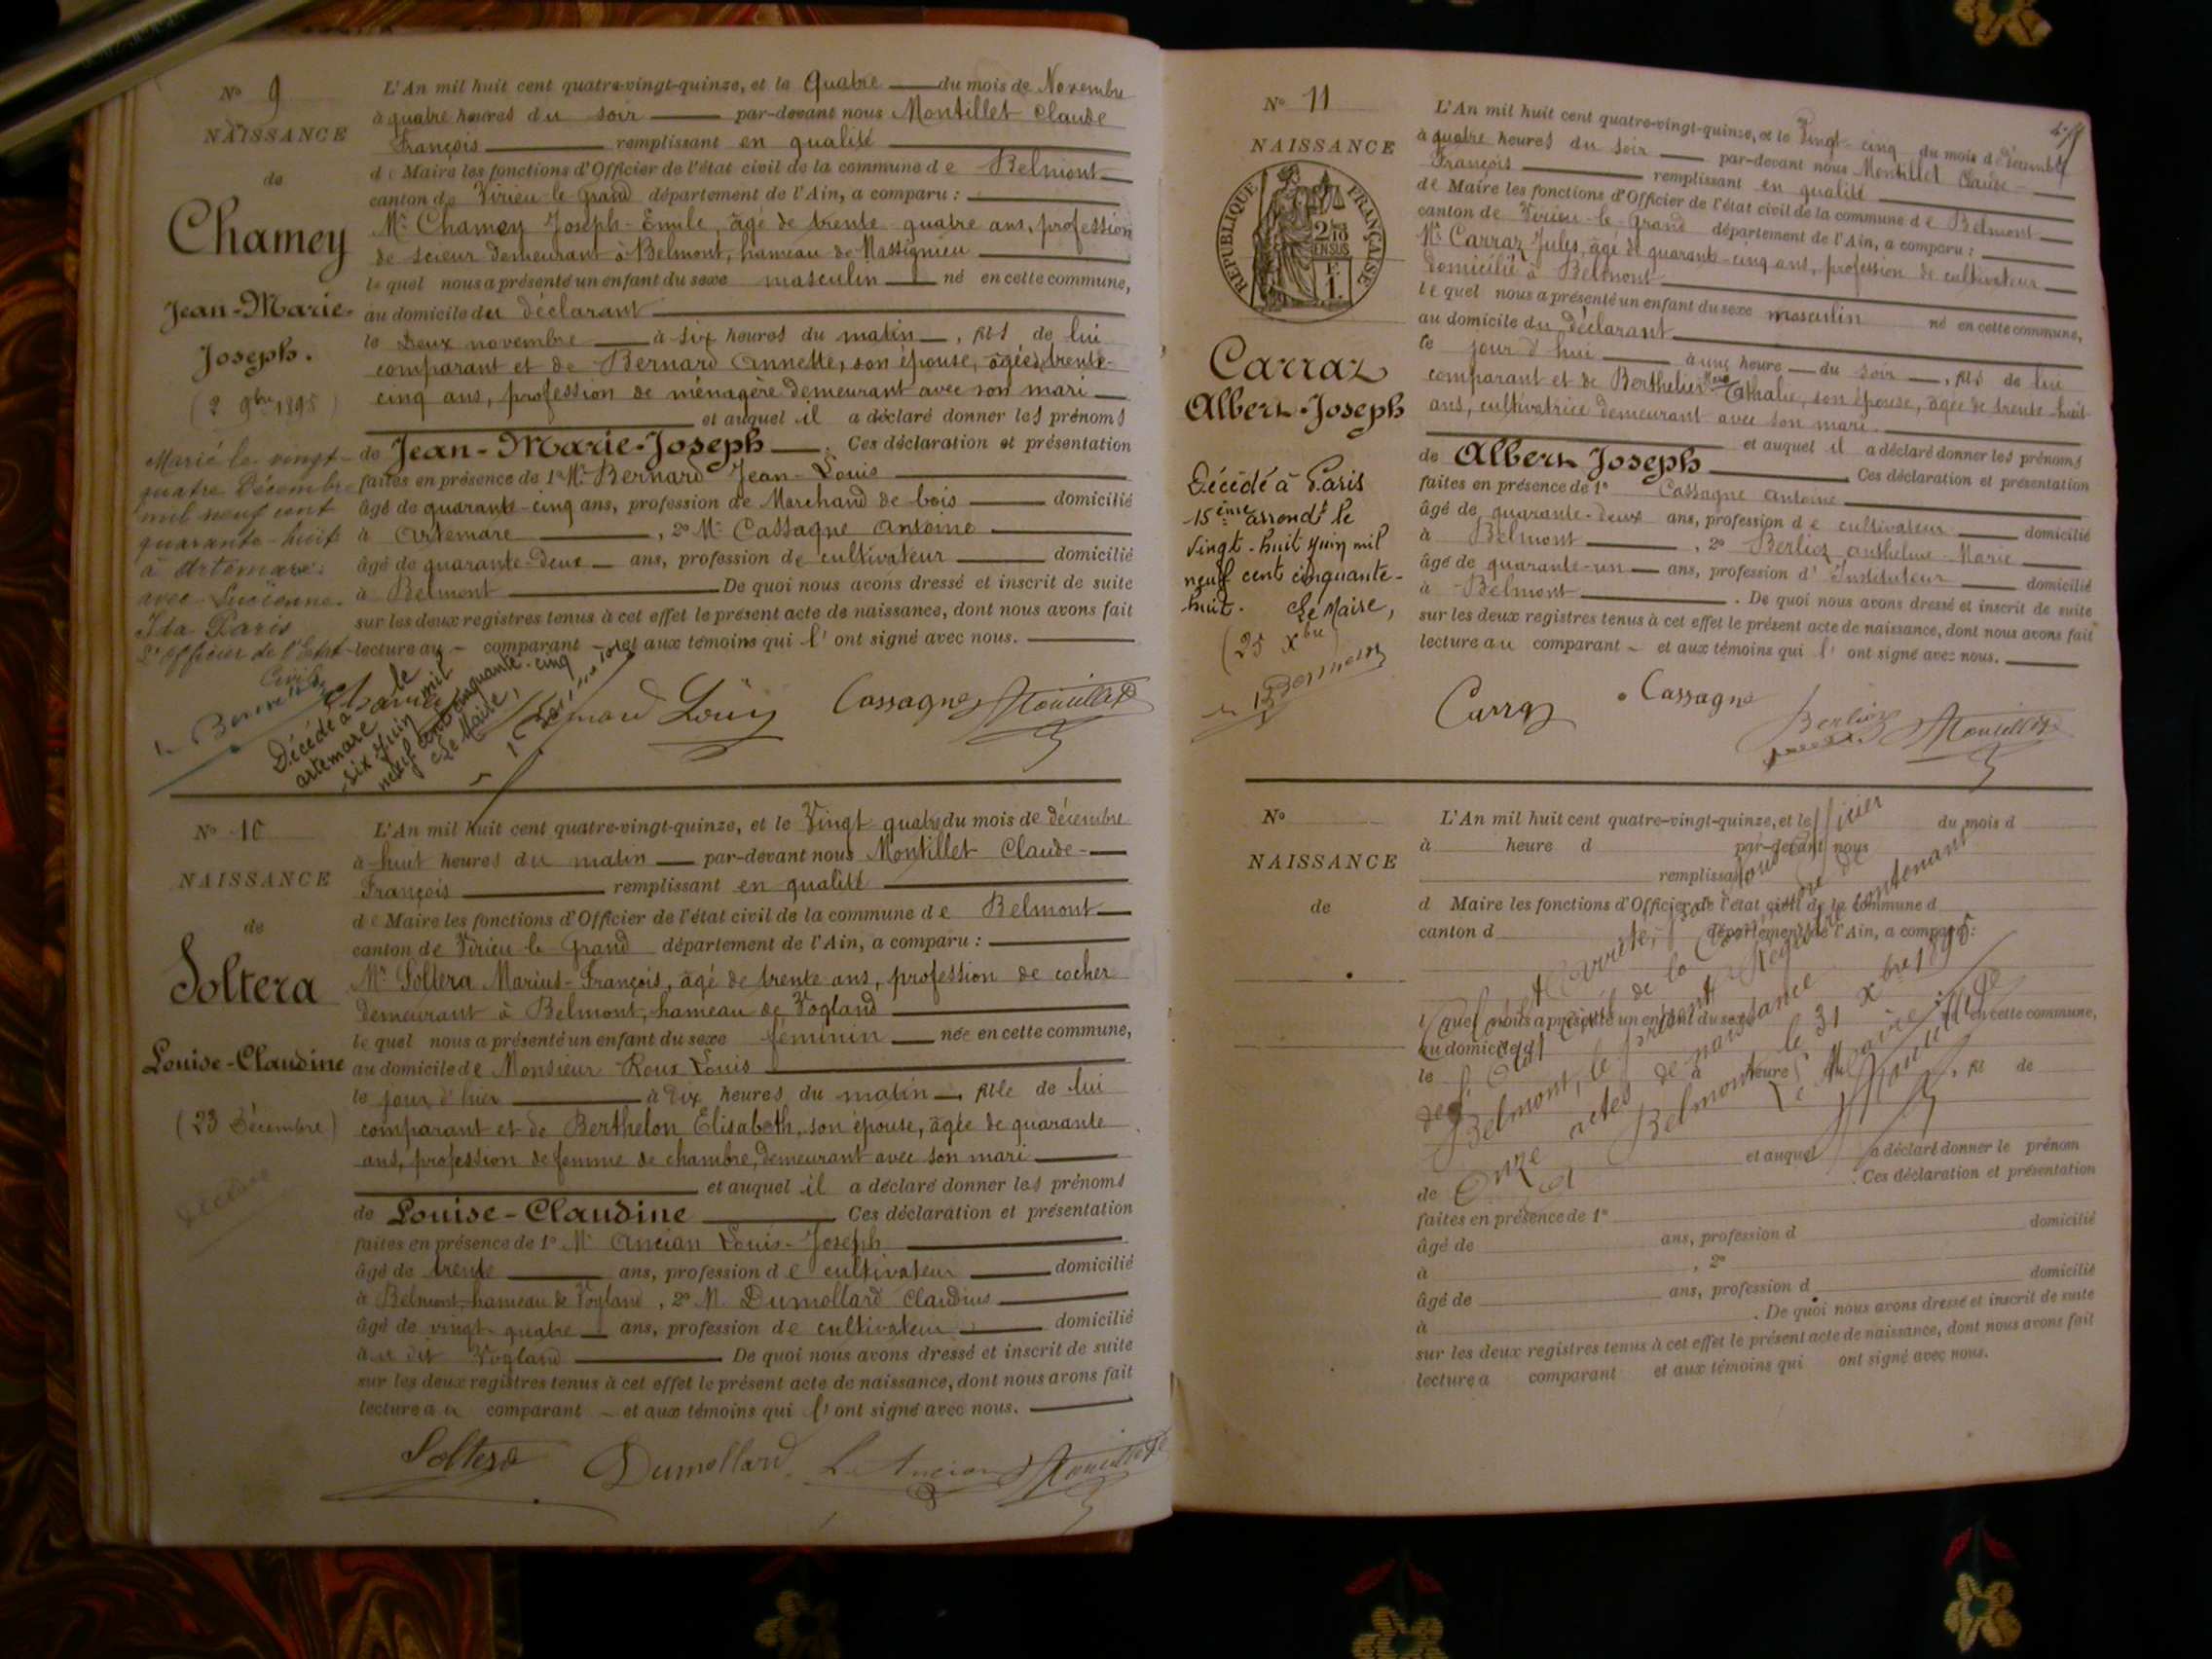 N° 9
NAISSANCE
de
Chamey
Jean-Marie-
Joseph.
(2 9bre 1895)
Marié le vingt-
quatre Décembre
mil neuf cent
quarante-huit
à Artemare
avec Lucienne
Ida Paris
L'officier de l'Etat
Civil,
Décédé à
Artemare le
six Juin mil
neuf cent cinquante-cinq
Le Maire,
L'An mil huit cent quatre-vingt-quinze, et le Quatre du mois de Novembre
à quatre heures du soir par-devant nous Montillet Claude
François remplissant en qualité
de Maire les fonctions d'Officier de l'état civil de la commune de Belmont
canton de Virieu-le-Grand département de l'Ain, a comparu :
Mr Chamey Joseph-Emile, âgé de trente-quatre ans, profession
de scieur demeurant à Belmont, hameau de Massignieu
le quel nous a présenté un enfant du sexe masculin né en cette commune,
au domicile du déclarant
le Deux novembre à six heures du matin, fils de lui
comparant et de Bernard Annette, son épouse, âgée de trente-
cinq ans, profession de ménagère demeurant avec son mari
et auquel il a déclaré donner les prénoms
de Jean-Marie-Joseph. Ces déclaration et présentation
faites en présence de 1° Mr Bernard Jean-Louis
âgé de quarante-cinq ans, profession de Marchand de bois domicilié
à Artemare, 2° Mr Cassagne Antoine
âgé de quarante-deux ans, profession de cultivateur domicilié
à Belmont De quoi nous avons dressé et inscrit de suite
sur les deux registres tenus à cet effet le présent acte de naissance, dont nous avons fait
lecture au comparant et aux témoins qui l' ont signé avec nous.
Bernard Louis Cassagne Montillet
N° 10
NAISSANCE
de
Soltera
Louise-Claudine
(23 Décembre)
L'An mil huit cent quatre-vingt-quinze, et le Vingt quatre du mois de Décembre
à huit heures du matin par-devant nous Montillet Claude-
François remplissant en qualité
de Maire les fonctions d'Officier de l'état civil de la commune de Belmont
canton de Virieu-le-Grand département de l'Ain, a comparu :
Mr Soltera Marius-François, âgé de trente ans, profession de cocher
demeurant à Belmont, hameau de Vogland
le quel nous a présenté un enfant du sexe féminin née en cette commune,
au domicile de Monsieur Roux Louis
le jour d'hier à dix heures du matin, fille de lui
comparant et de Berthelon Elisabeth, son épouse, âgée de quarante
ans, profession de femme de chambre, demeurant avec son mari
et auquel il a déclaré donner les prénoms
de Louise-Claudine Ces déclaration et présentation
faites en présence de 1° Mr Ancian Louis-Joseph
âgé de trente ans, profession de cultivateur domicilié
à Belmont, hameau de Vogland, 2° M. Dumollard Claudius
âgé de vingt-quatre ans, profession de cultivateur domicilié
au dit Vogland De quoi nous avons dressé et inscrit de suite
sur les deux registres tenus à cet effet le présent acte de naissance, dont nous avons fait
lecture au comparant et aux témoins qui l' ont signé avec nous.
Soltera Dumollard L. Ancian Montillet
N° 11
NAISSANCE
RÉPUBLIQUE FRANÇAISE
2/10 EN SUS
F.
1.
Carraz
Albert-Joseph
Décédé à Paris
15ème arrondt le
vingt-huit Juin mil
neuf cent cinquante-
huit. Le Maire,
(25 Xbre)
L'An mil huit cent quatre-vingt-quinze, et le Vingt-cinq du mois de Décembre
à quatre heures du soir par-devant nous Montillet Claude-
François remplissant en qualité
de Maire les fonctions d'Officier de l'état civil de la commune de Belmont
canton de Virieu-le-Grand département de l'Ain, a comparu :
Mr Carraz Jules, âgé de quarante-cinq ans, profession de cultivateur
domicilié à Belmont
le quel nous a présenté un enfant du sexe masculin né en cette commune,
au domicile du déclarant
le jour d'hui à une heure du soir, fils de lui
comparant et de Berthelier Athalie, son épouse, âgée de trente-huit
ans, cultivatrice demeurant avec son mari.
et auquel il a déclaré donner les prénoms
de Albert Joseph Ces déclaration et présentation
faites en présence de 1° Cassagne Antoine
âgé de quarante-deux ans, profession de cultivateur domicilié
à Belmont, 2° Berlioz Anthelme-Marie
âgé de quarante-un ans, profession d' Instituteur domicilié
à Belmont. De quoi nous avons dressé et inscrit de suite
sur les deux registres tenus à cet effet le présent acte de naissance, dont nous avons fait
lecture au comparant et aux témoins qui l' ont signé avec nous.
Carraz Cassagne Berlioz Montillet
N°
NAISSANCE
de
L'An mil huit cent quatre-vingt-quinze, et le du mois d
à heure d par-devant nous
remplissant
d Maire les fonctions d'Officier de l'état civil de la commune d
canton d département de l'Ain, a comparu :
l quel nous a présenté un enfant du sexe né en cette commune,
au domicile d
le à heure d, fil de
et auquel a déclaré donner le prénom
de . Ces déclaration et présentation
faites en présence de 1°
âgé de ans, profession d domicilié
à , 2°
âgé de ans, profession d domicilié
à . De quoi nous avons dressé et inscrit de suite
sur les deux registres tenus à cet effet le présent acte de naissance, dont nous avons fait
lecture a comparant et aux témoins qui ont signé avec nous.
Arrêté, par nous Officier
de l'Etat civil de la Commune de
Belmont, le présent Registre contenant
Onze actes de naissance
A Belmont le 31 Xbre 1895
Le Maire :
Montillet